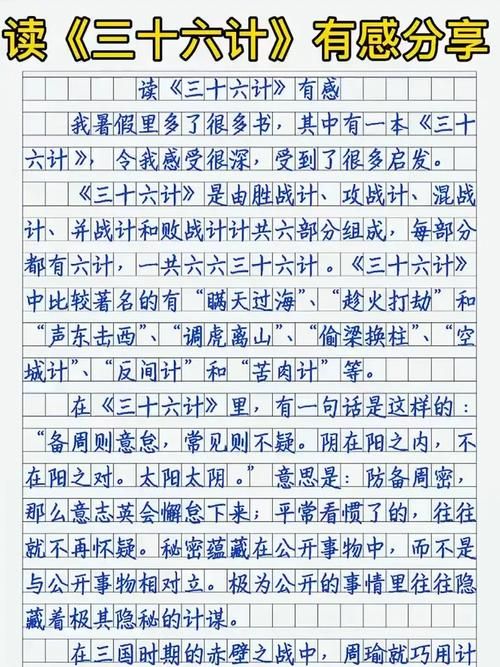 读《三十六计》有感分享
读《三十六计》有感
我暑假里多了很多书，其中有一本《三十
六计》，令我感受很深，受到了很多启发。
《三十六计》是由胜战计、攻战计、混战
计、并战计和败战计计共六部分组成，每部分
都有六计，一共六六三十六计。《三十六计》
中比较著名的有“瞒天过海”、“趁火打劫”和
“声东击西”、“调虎离山”、“偷梁换柱”、“空
城计”、“反间计”和“苦肉计”等。
在《三十六计》里，有一句话是这样的：
“备周则意怠，常见则不疑。阴在阳之内，不
在阳之对。太阳太阴。”意思是：防备周密，
那么意志英会懈怠下来；平常看惯了的，往往
就不再怀疑。秘密蕴藏在公开事物中，而不是
与公开事物相对立。极为公开的事情里往往隐
藏着极其隐秘的计谋。
在三国时期的赤壁之战中，周瑜就巧用计